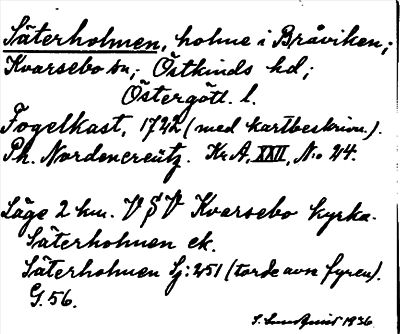 Säterholmen, holme i Bråviken;
Kvarsebo sn; Östkinds hd;
Östergötl. l.
Fogelkast, 1722 (med kartbeskrivn.).
Ph. Nordencreütz. Kr.A, XXII, N:o 24.
Läge 2 km. V S V Kvarsebo kyrka.
Säterholmen ek.
Säterholmen Sj: 251 (torde avse fyren).
G. 56.
S. Lundqvist 1936